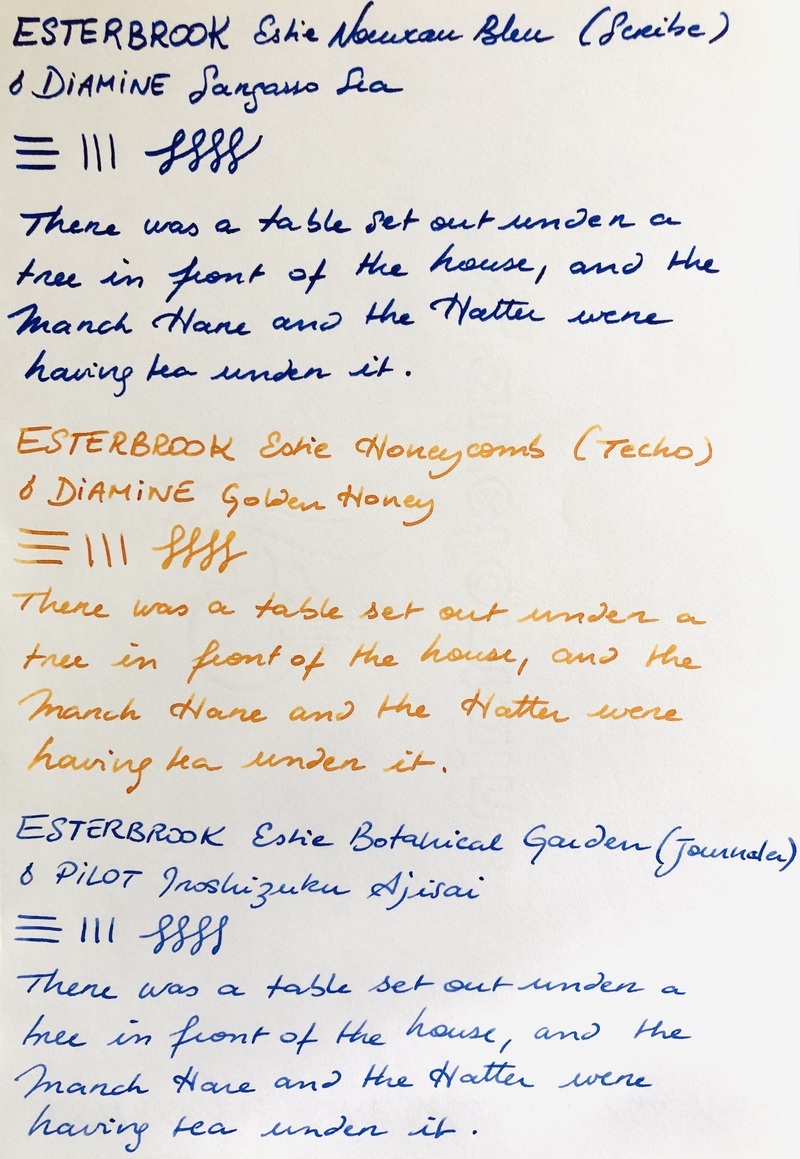 ESTERBROOK Estie Nouveau Bleu (Scribe)
& DiAMINE Sargasso Sea
There was a table set out under a
tree in front of the house, and the
March Hare and the Hatter were
having tea under it.
ESTERBROOK Estie Honeycomb (Techo)
& DiAMINE Golden Honey
There was a table set out under a
tree in front of the house, and the
March Hare and the Hatter were
having tea under it.
ESTERBROOK Estie Botanical Garden (Journaler)
& PiLOT Iroshizuku Ajisai
There was a table set out under a
tree in front of the house, and the
March Hare and the Hatter were
having tea under it.